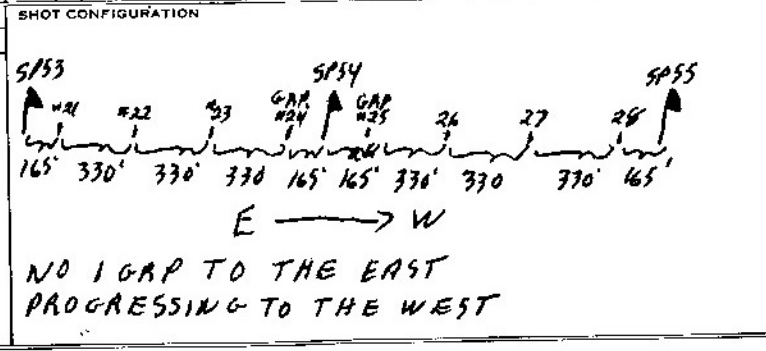 SHOT CONFIGURATION
SP53 SP54 SP55
GRP. GRP
#21 #22 #23 #24 #25 26 27 28
165' 330' 330' 330 165' 165' 330' 330 330' 165'
E W
NO 1 GRP TO THE EAST
PROGRESSING TO THE WEST